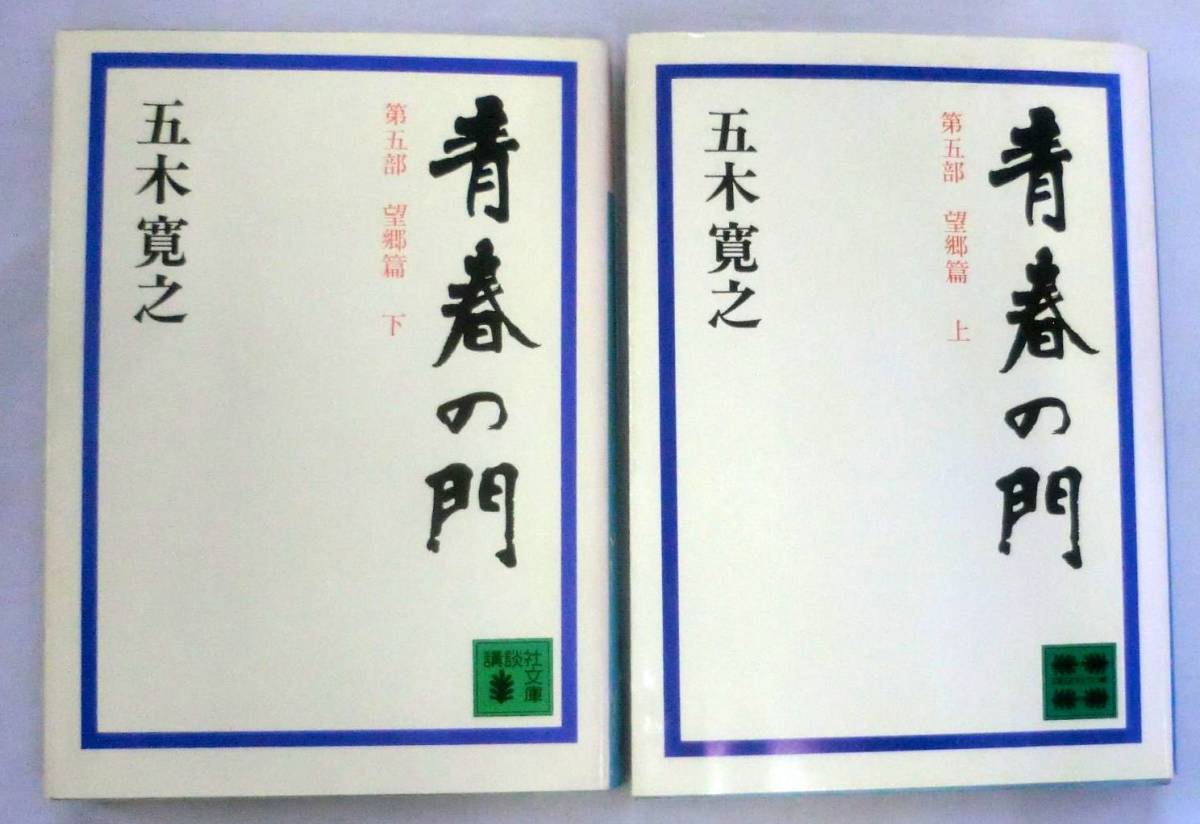 青春の門
第五部 望郷篇 下
五木寛之
講談社
文庫
青春の門
第五部 望郷篇 上
五木寛之